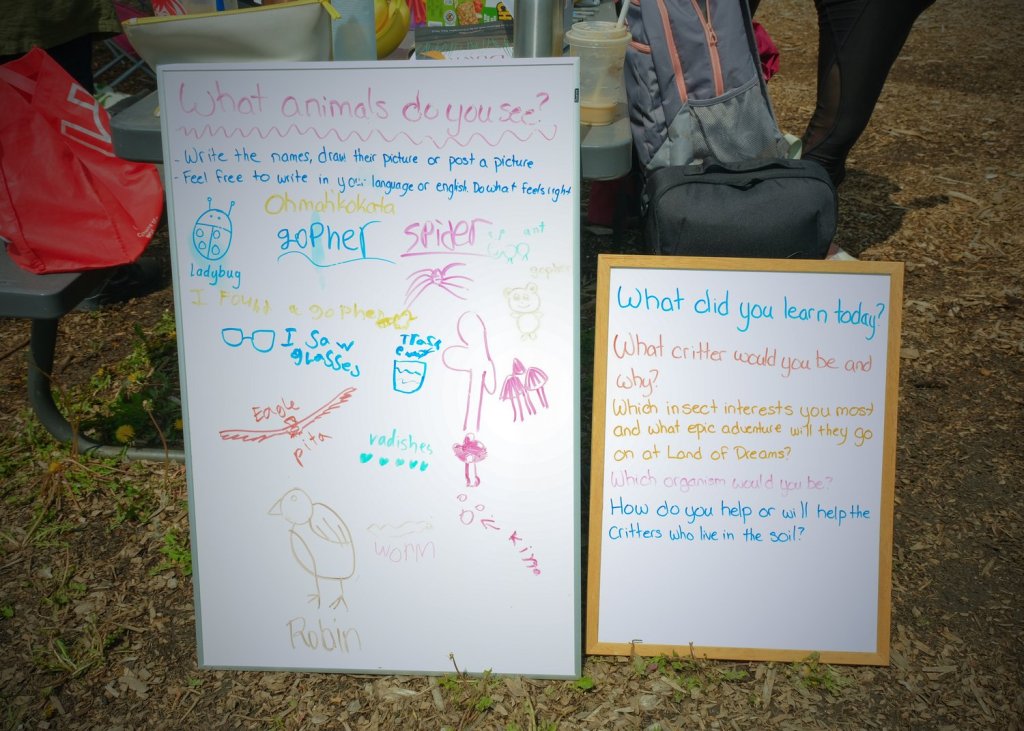 What animals do you see?
- Write the names, draw their picture or post a picture
- Feel free to write in your language or english. Do what feels right
Ohmahkokata
gopher
spider
ant
Ladybug
gopher
I found a gopher
I Saw
glasses
Eagle
pita
radishes
worm
Robin
What did you learn today?
What critter would you be and
why?
Which insect interests you most
and what epic adventure will they go
on at Land of Dreams?
Which organism would you be?
How do you help or will help the
critters who live in the soil?